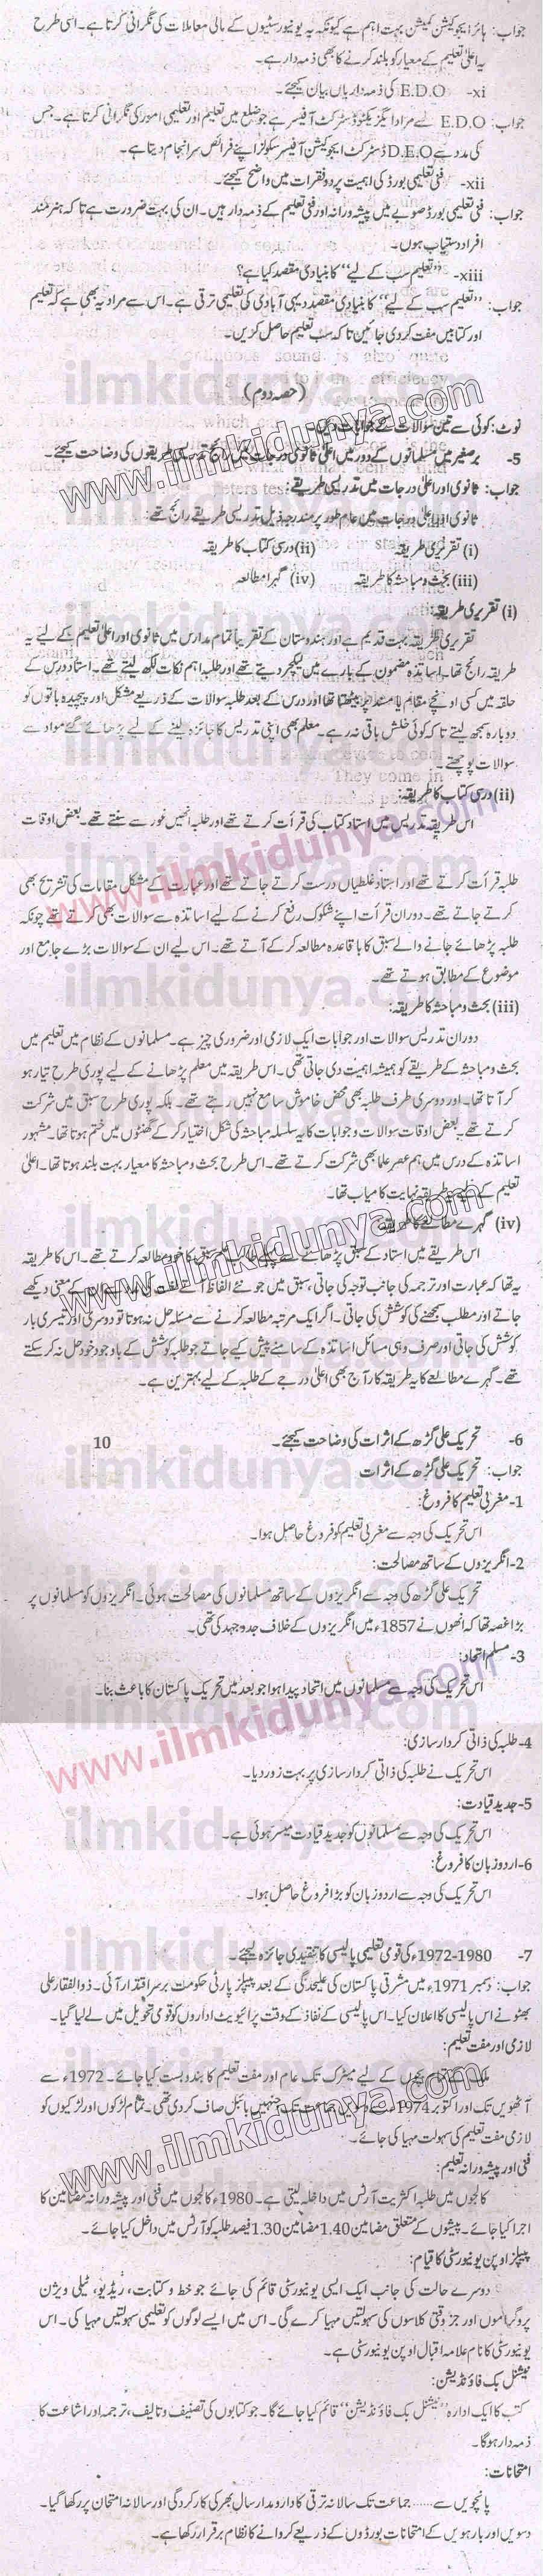 جواب: ہائر ایجوکیشن کمیشن بہت اہم ہے کیونکہ یہ یونیورسٹیوں کے مالی معاملات کی نگرانی کرتا ہے۔ اسی طرح
یہ اعلیٰ تعلیم کے معیار کو بلند کرنے کا بھی ذمہ دار ہے۔
xi- E.D.O کی ذمہ داریاں بیان کیجئے۔
جواب: E.D.O سے مراد ایگزیکٹو ڈسٹرکٹ آفیسر ہے جو ضلع میں تعلیم اور تعلیمی امور کی نگرانی کرتا ہے۔ جس
کی مدد سے D.E.O ڈسٹرکٹ ایجوکیشن آفیسر سکولز اپنے فرائض سرانجام دیتا ہے۔
xii- فنی تعلیمی بورڈ کی اہمیت پر دو فقرات میں واضح کیجئے۔
جواب: فنی تعلیمی بورڈ صوبے میں پیشہ ورانہ اور فنی تعلیم کے ذمہ دار ہیں۔ ان کی بہت ضرورت ہے تاکہ ہنرمند
افراد دستیاب ہوں۔
xiii- ”تعلیم سب کے لیے“ کا بنیادی مقصد کیا ہے؟
جواب: ”تعلیم سب کے لیے“ کا بنیادی مقصد دیہی آبادی کی تعلیمی ترقی ہے۔ اس سے مراد یہ بھی ہے کہ تعلیم
اور کتابیں مفت کر دی جائیں تاکہ سب تعلیم حاصل کریں۔
ilmkidunya.com
(حصہ دوم)
www.ilmkidunya.com
نوٹ: کوئی سے تین سوالات کے جوابات
5- برصغیر میں مسلمانوں کے دور میں اعلیٰ ثانوی درجات میں رائج تدریسی طریقوں کی وضاحت کیجئے۔
جواب: ثانوی اور اعلیٰ درجات میں تدریسی طریقے:
ثانوی اور اعلیٰ درجات میں عام طور پر مندرجہ ذیل تدریسی طریقے رائج تھے:
(i) تقریری طریقہ (ii) درسی کتاب کا طریقہ
(iii) بحث و مباحثہ کا طریقہ (iv) گہرا مطالعہ
(i) تقریری طریقہ
تقریری طریقہ بہت قدیم ہے اور ہندوستان کے تقریباً تمام مدارس میں ثانوی اور اعلیٰ تعلیم کے لیے یہ
طریقہ رائج تھا۔ اساتذہ مضمون کے بارے میں لیکچر دیتے تھے اور طلبہ اہم نکات لکھ لیتے تھے۔ استاد درس کے
حلقہ میں کسی اونچے مقام یا مسند پر بیٹھتا تھا اور درس کے بعد طلبہ سوالات کے ذریعے مشکل اور پیچیدہ باتوں کو
دوبارہ سمجھ لیتے تاکہ کوئی خلش باقی نہ رہے۔ معلم بھی اپنی تدریس کا جائزہ لینے کے لیے پڑھائے گئے مواد سے
سوالات پوچھتے۔
(ii) درسی کتاب کا طریقہ:
اس طریقہ تدریس میں استاد کتاب کی قرأت کرتے تھے اور طلبہ انھیں غور سے سنتے تھے۔ بعض اوقات
www.ilmkidunya.com
طلبہ قرأت کرتے تھے اور استاد غلطیاں درست کرتے جاتے تھے اور عبارت کے مشکل مقامات کی تشریح بھی
کرتے جاتے تھے۔ دوران قرأت اپنے شکوک رفع کرنے کے لیے اساتذہ سے سوالات بھی کرتے تھے چونکہ
طلبہ پڑھائے جانے والے سبق کا باقاعدہ مطالعہ کر کے آتے تھے۔ اس لیے ان کے سوالات بڑے جامع اور
موضوع کے مطابق ہوتے تھے۔
ilmkidunya.com
(iii) بحث و مباحثہ کا طریقہ:
دوران تدریس سوالات اور جوابات ایک لازمی اور ضروری چیز ہے۔ مسلمانوں کے نظام میں تعلیم میں
بحث و مباحثہ کے طریقے کو ہمیشہ اہمیت دی جاتی تھی۔ اس طریقہ میں معلم پڑھانے کے لیے پوری طرح تیار ہو
کر آتا تھا۔ اور دوسری طرف طلبہ بھی محض خاموش سامع نہیں رہتے تھے۔ بلکہ پوری طرح سبق میں شرکت
کرتے تھے۔ بعض اوقات سوالات و جوابات کا یہ سلسلہ مباحثہ کی شکل اختیار کر کے گھنٹوں میں ختم ہوتا تھا۔ مشہور
اساتذہ کے درس میں ہم عصر علما بھی شرکت کرتے تھے۔ اس طرح بحث و مباحثہ کا معیار بہت بلند ہوتا تھا۔ اعلیٰ
تعلیم کے لیے یہ طریقہ نہایت کامیاب تھا۔
www.ilmkidunya.com
(iv) گہرے مطالعے کا طریقہ
اس طریقے میں استاد کے سبق پڑھانے سے پہلے طلبہ سبق کا خود مطالعہ کرتے تھے۔ اس کا طریقہ
یہ تھا کہ عبارت اور ترجمہ کی جانب توجہ کی جاتی، سبق میں جو نئے الفاظ آتے کے معنی دیکھے
جاتے اور مطلب سمجھنے کی کوشش کی جاتی۔ اگر ایک مرتبہ مطالعہ کرنے سے مسئلہ حل نہ ہوتا تو دوسری اور تیسری بار
کوشش کی جاتی اور صرف وہی مسائل اساتذہ کے سامنے پیش کیے جاتے جو طلبہ کوشش کے باوجود خود حل نہ کر سکتے
تھے۔ گہرے مطالعے کا یہ طریقہ کار آج بھی اعلیٰ درجے کے طلبہ کے لیے بہترین ہے۔
6- تحریک علی گڑھ کے اثرات کی وضاحت کیجئے۔ 10
جواب: تحریک علی گڑھ کے اثرات
ilmkidunya.com
1- مغربی تعلیم کا فروغ:
اس تحریک کی وجہ سے مغربی تعلیم کو فروغ حاصل ہوا۔
2- انگریزوں کے ساتھ مصالحت:
تحریک علی گڑھ کی وجہ سے انگریزوں کے ساتھ مسلمانوں کی مصالحت ہوئی۔ انگریزوں کو مسلمانوں پر
بڑا غصہ تھا کہ انھوں نے 1857ء میں انگریزوں کے خلاف جدوجہد کی تھی۔
3- مسلم اتحاد:
اس تحریک کی وجہ سے مسلمانوں میں اتحاد پیدا ہوا جو بعد میں تحریک پاکستان کا باعث بنا۔
www.ilmkidunya.com
4- طلبہ کی ذاتی کردار سازی:
اس تحریک نے طلبہ کی ذاتی کردار سازی پر بہت زور دیا۔
5- جدید قیادت:
اس تحریک کی وجہ سے مسلمانوں کو جدید قیادت میسر ہوئی ہے۔
6- اردو زبان کا فروغ:
اس تحریک کی وجہ سے اردو زبان کو بڑا فروغ حاصل ہوا۔
7- 1972-1980ء کی قومی تعلیمی پالیسی کا تنقیدی جائزہ لیجئے۔
جواب: دسمبر 1971ء میں مشرقی پاکستان کی علیحدگی کے بعد پیپلز پارٹی حکومت برسر اقتدار آئی۔ ذوالفقار علی
بھٹو نے اس پالیسی کا اعلان کیا۔ اس پالیسی کے نفاذ کے وقت پرائیویٹ اداروں کو قومی تحویل میں لے لیا گیا۔
لازمی اور مفت تعلیم:
بچوں کے لیے میٹرک تک عام اور مفت تعلیم کا بندوبست کیا جائے۔ 1972ء سے
آٹھویں تک اور اکتوبر 1974ء سے جماعت تک فیس بالکل معاف کر دی تھی۔ تمام لڑکوں اور لڑکیوں کو
لازمی مفت تعلیم کی سہولت مہیا کی جائے۔
www.ilmkidunya.com
فنی اور پیشہ ورانہ تعلیم:
کالجوں میں طلبہ اکثریت آرٹس میں داخلہ لیتی ہے۔ 1980ء کالجوں میں فنی اور پیشہ ورانہ مضامین کا
اجرا کیا جائے۔ پیشوں کے متعلق مضامین 1.40 مضامین 1.30 فیصد طلبہ کو آرٹس میں داخل کیا جائے۔
پیپلز اوپن یونیورسٹی کا قیام:
دوسرے حالت کی جانب ایک ایسی یونیورسٹی قائم کی جائے جو خط و کتابت، ریڈیو، ٹیلی ویژن
پروگراموں اور جزوقتی کلاسوں کی سہولتیں مہیا کرے گی۔ اس میں ایسے لوگوں کو تعلیمی سہولتیں مہیا کی۔ اس
یونیورسٹی کا نام علامہ اقبال اوپن یونیورسٹی ہے۔
نیشنل بک فاؤنڈیشن:
کتب کا ایک ادارہ ”نیشنل بک فاؤنڈیشن“ قائم کیا جائے گا۔ جو کتابوں کی تصنیف و تالیف، ترجمہ اور اشاعت کا
ذمہ دار ہوگا۔
امتحانات:
پانچویں سے...... جماعت تک سالانہ ترقی کا دارومدار سال بھر کی کارکردگی اور سالانہ امتحان پر رکھا گیا۔
دسویں اور بارہویں کے امتحانات بورڈوں کے ذریعے کروانے کا نظام برقرار رکھا ہے۔